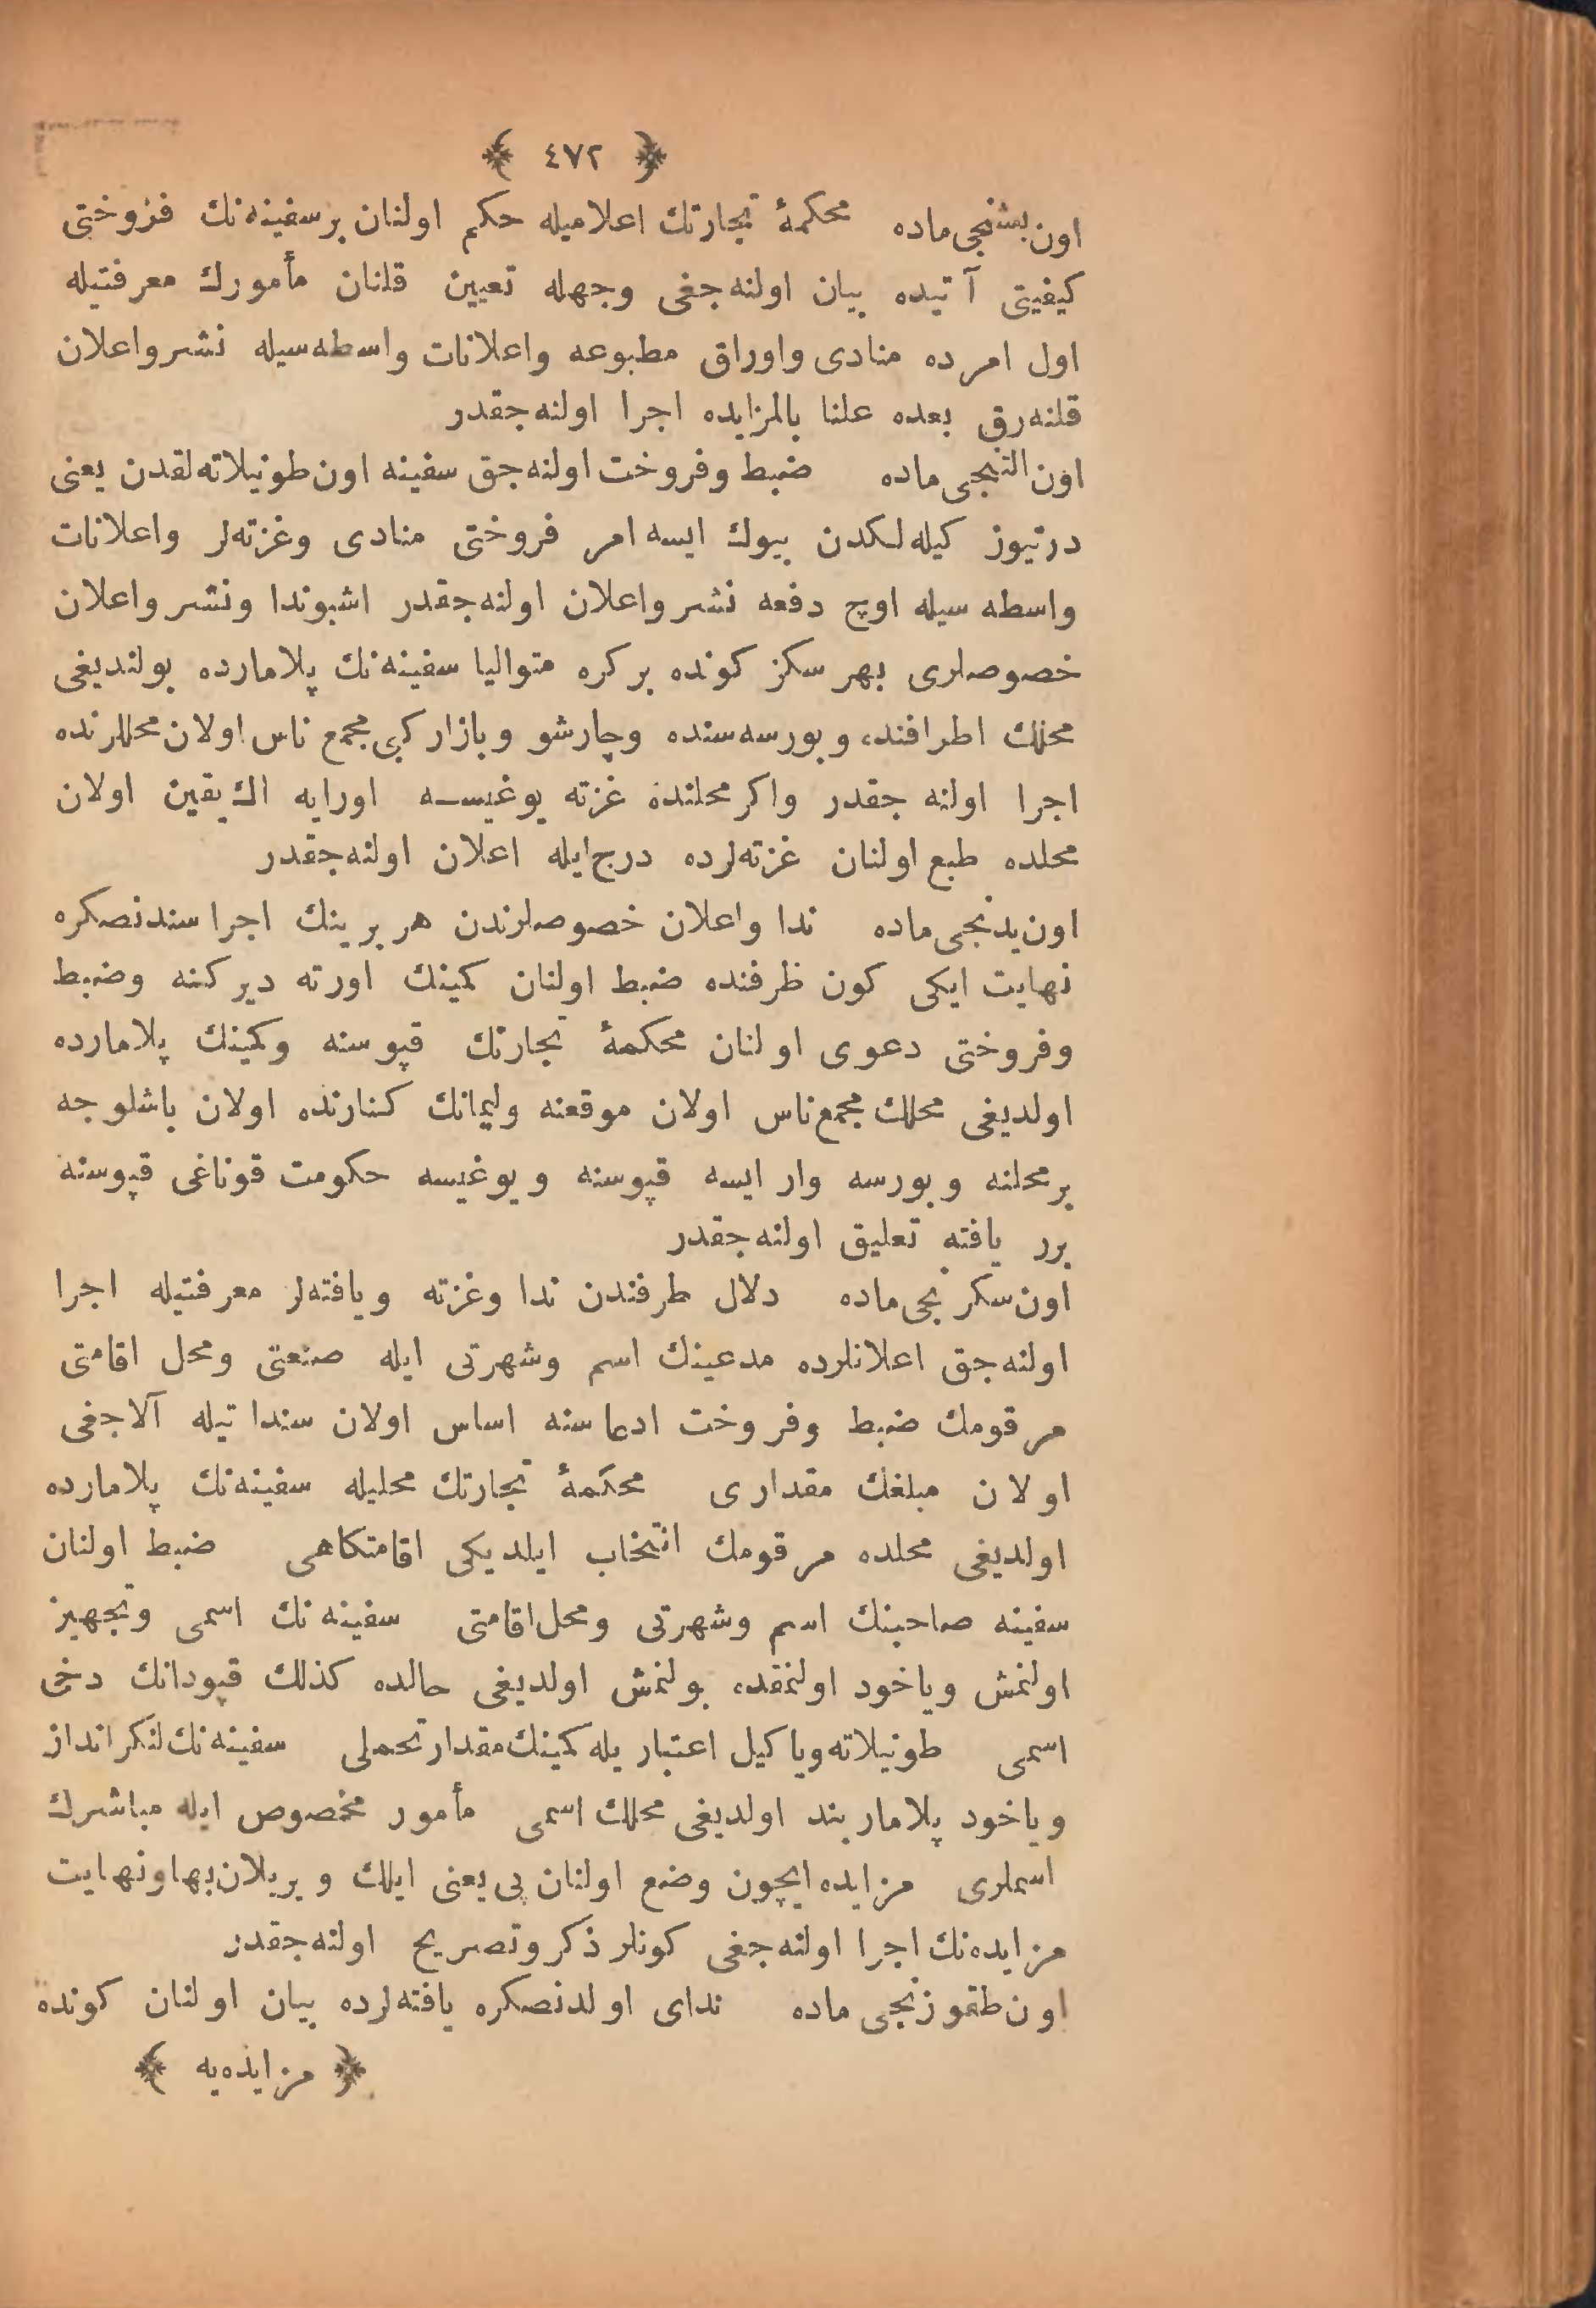 ﴿ ٤٧٢ ﴾
اون بشنجی ماده محكمهٔ تجارتك اعلامیله حكم اولنان بر سفینه‌نك فروختی
كیفیتی آتیده بیان اولنه‌جغی وجهله تعیین قلنان مأمورك معرفتیله
اول امرده منادی واوراق مطبوعه واعلانات واسطه‌سیله نشر واعلان
قلنه‌رق بعده علنا بالمزایده اجرا اولنه‌جقدر
اون التنجی ماده ضبط وفروخت اولنه‌جق سفینه اون طونیلاته‌لقدن یعنی
درتیوز كیله‌لكدن بیوك ایسه امر فروختی منادی وغزته‌لر واعلانات
واسطه سیله اوچ دفعه نشر واعلان اولنه‌جقدر اشبوندا ونشر واعلان
خصوصلری بهر سكز كونده بر كره متوالیا سفینه‌نك پلامارده بولندیغی
محلك اطرافنده وبورسه‌سنده وچارشو وبازار كبی مجمع ناس اولان محللرنده
اجرا اولنه جقدر واكر محلنده غزته یوغیسـه اورایه اك یقین اولان
محلده طبع اولنان غزته‌لرده درج ایله اعلان اولنه‌جقدر
اون یدنجی ماده ندا واعلان خصوصلرندن هر برینك اجرا سندنصكره
نهایت ایكی كون ظرفنده ضبط اولنان كمینك اورته دیركنه وضبط
وفروختی دعوی اولنان محكمهٔ تجارتك قپوسنه وكمینك پلامارده
اولدیغی محلك مجمع ناس اولان موقعنه ولیمانك كنارنده اولان باشلوجه
بر محلنه وبورسه وار ایسه قپوسنه ویوغیسه حكومت قوناغی قپوسنه
برر یافته تعلیق اولنه‌جقدر
اون سكزنجی ماده دلال طرفندن ندا وغزته ویافته‌لر معرفتیله اجرا
اولنه‌جق اعلانلرده مدعینك اسم وشهرتی ایله صنعتی ومحل اقامتی
مرقومك ضبط وفروخت ادعاسنه اساس اولان سنداتیله آلاجغی
اولان مبلغك مقداری محكمهٔ تجارتك محلیله سفینه‌نك پلامارده
اولدیغی محلده مرقومك انتخاب ایلدیكی اقامتكاهی ضبط اولنان
سفینه صاحبنك اسم وشهرتی ومحل اقامتی سفینه‌نك اسمی وتجهیز
اولنمش ویاخود اولنمقده بولنمش اولدیغی حالده كذلك قپودانك دخی
اسمی طونیلاته ویا كیل اعتباریله كمینك مقدار تحملی سفینه‌نك لنكرانداز
ویاخود پلاماربند اولدیغی محلك اسمی مأمور مخصوص ایله مباشرك
اسملری مزایده ایچون وضع اولنان پی یعنی ایلك ویریلان بها ونهایت
مزایده‌نك اجرا اولنه‌جغی كونلر ذكر وتصریح اولنه‌جقدر
اون طقوزنجی ماده ندای اولدنصكره یافته‌لرده بیان اولنان كونده
﴿ مزایده‌یه ﴾